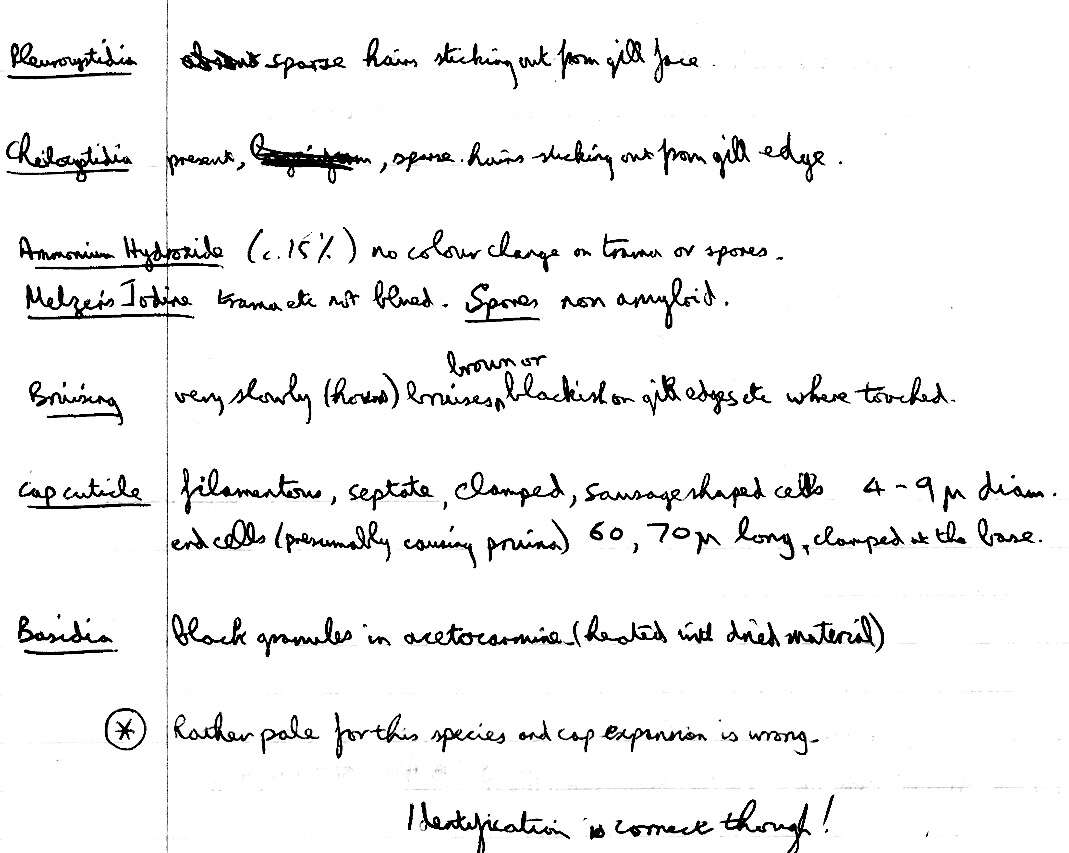 Pleurocystidia absent sparse hairs sticking out from gill face.
Cheilocystidia present, , sparse hairs sticking out from gill edge.
Ammonium Hydroxide (c.15%) no colour change on trama or spores.
Melzer's Iodine trama etc not blued. Spores non amyloid.
brown or
Bruising very slowly (hours) bruises blackish on gill edges etc where touched.
Cap cuticle filamentous, septate, clamped, sausage shaped cells 4-9μ diam.
end cells (presumably causing pruina) 60, 70μ long, clamped at the base.
Basidia black granules in acetocarmine (heated with dried material)
* Rather pale for this species and cap expansion is wrong.
Identification is correct though!